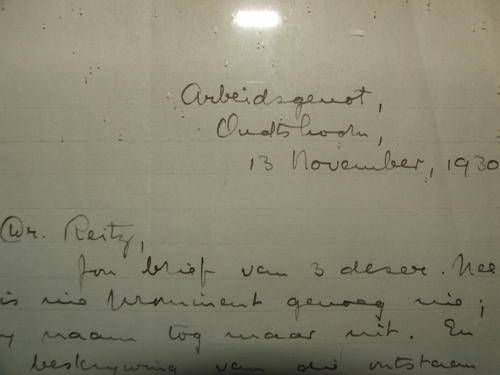 Arbeidsgenot,
Oudtshoorn,
13 November, 1930
Dr. Reitz,
Jou brief van 3 deser. Nee
is nie prominent genoeg nie;
y naam tog maar uit. En
beskrywing van die ontstaan